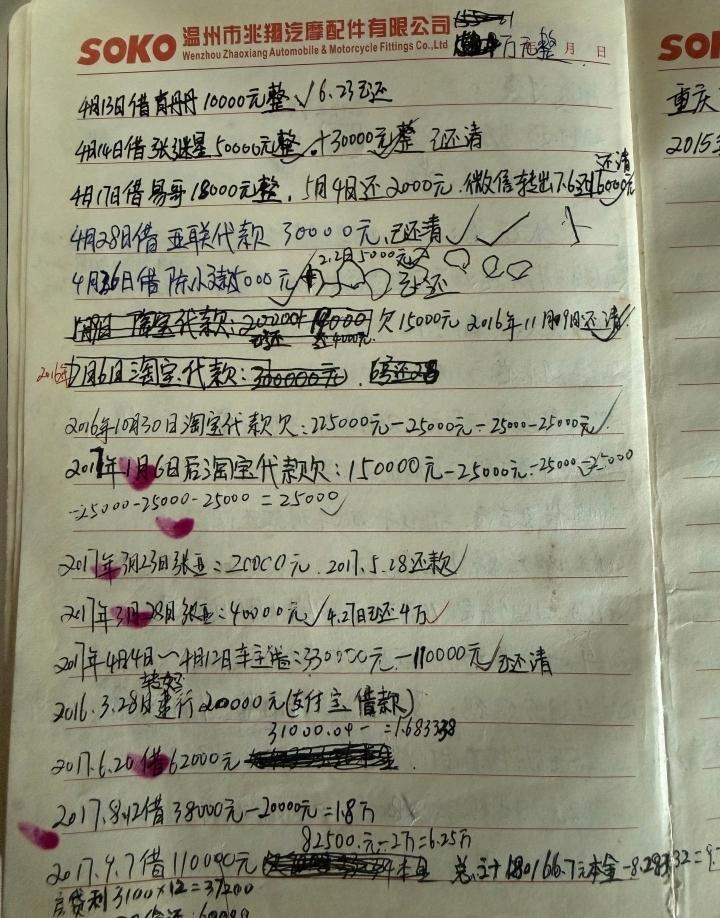 SOKO 温州市兆翔汽摩配件有限公司
Wenzhou Zhaoxiang Automobile & Motorcycle Fittings Co.,Ltd
万元整 月 日
SO
重庆
2015
4月13日借 丹丹 10000元整 √ 6.23已还
4月14日借 张继星 50000元整 +30000元整 已还清
4月17日借易哥 18000元整, 5月4日还2000元.微信转出 还16000元
还清
4月28日借 亚联代款 30000元.已还清 √ √
2.2日5000元
4月26日借 陈小 5000元 已还
淘宝代款: 欠15000元 2016年11月9日还清
还4000元
2016年 7月6日淘宝代款: 300000元
2016年10月30日淘宝代款欠:225000元-25000元-25000-25000元√
2017年1月6日后淘宝代款欠:150000元-25000元-25000-25000
-25000-25000-25000=25000√
2017年3月23日张亚:20000元.2017.5.28还款√
2017年3月28日张亚:40000元√4.27日已还4万√
2017年4月4日~4月12日车宝 :330000元-110000元√已还清
转好
2016.3.28日建行200000元(支付宝借款)
31000.04- =1.683338
2017.6.20借62000元
2017.8.12借38000元-20000元=1.8万
82500.元-2万=6.25万
2017.9.7借110000元 本金 总 180166.7元本金-8.283332=9.
房贷利3100×12=37200